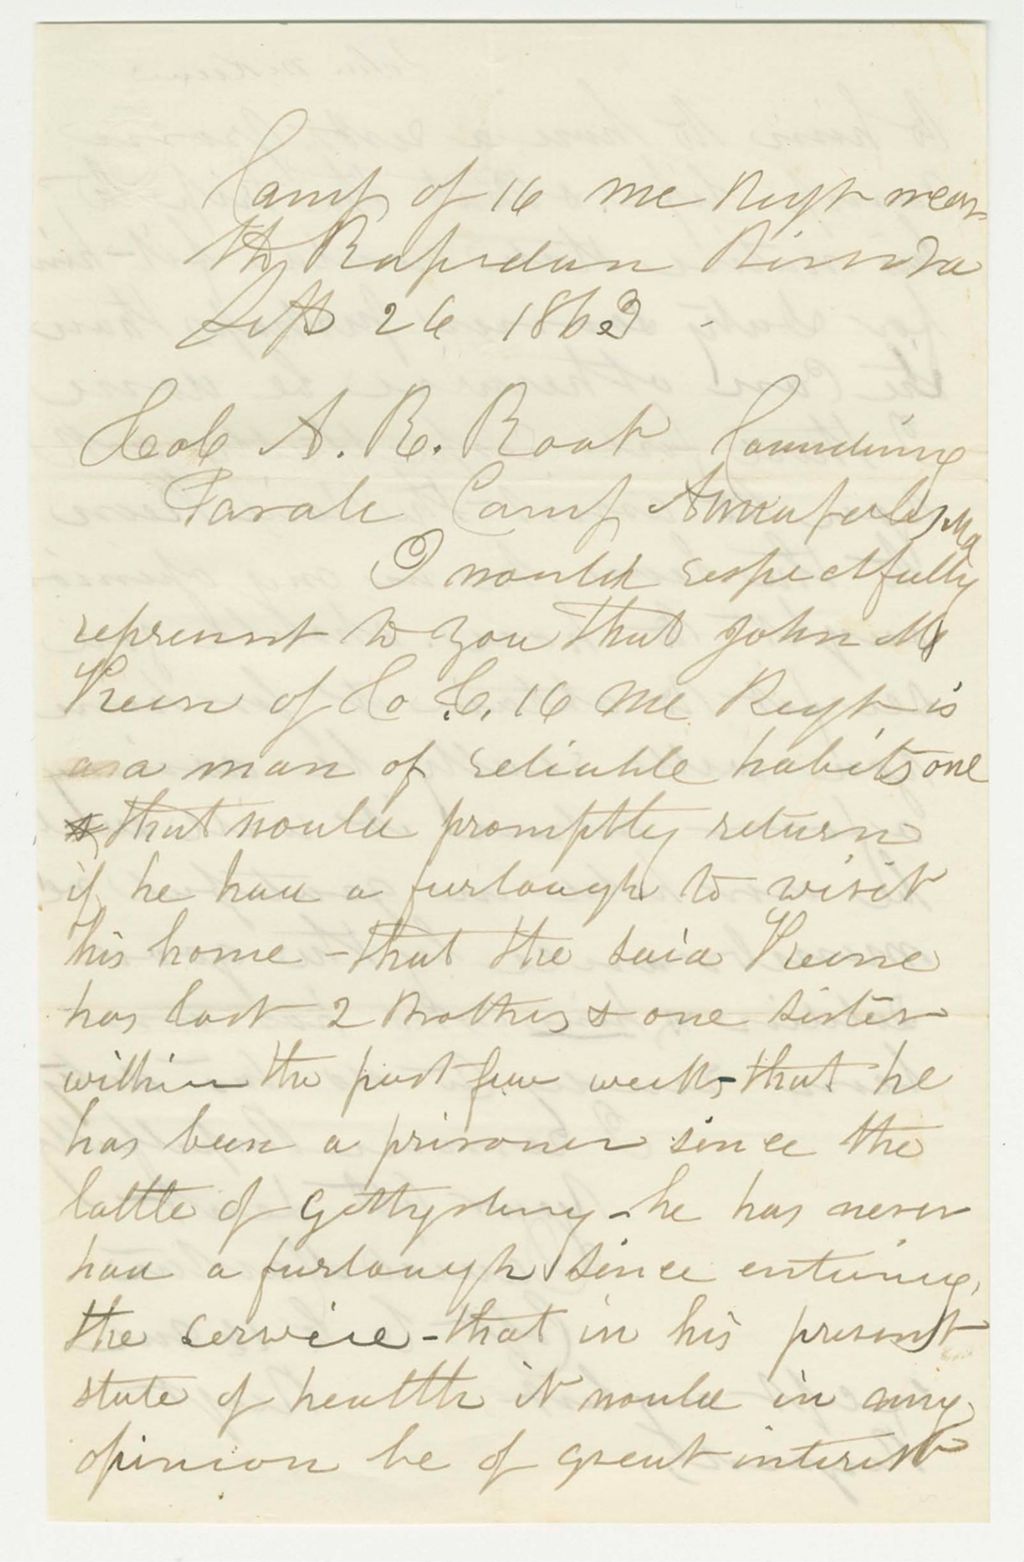 Camp of 16 Me Regt near
the Rapidan River Va
Sept 26 1863
Col A. R. Root Comnding
Parole Camp Annapolis, Md
I would respectfully
represent to you that John Mc
Keen of Co C. 16 Me Regt is
a man of reliable habits one
that would promptly return
if he had a furlough to visit
his home - that the said Keene
has lost 2 Brothers & one sister
within the past few weeks - that he
has been a prisoner since the
battle of Gettysburg - he has never
had a furlough since entering
the service - that in his present
state of health it would in my
opinion be of great interest